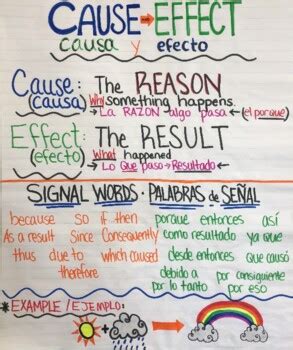 CAUSE → EFFECT
causa y efecto
Cause: The REASON
(causa) Why something happens.
→ La RAZON algo pasa ← (el porque)
Effect: The RESULT
(efecto) What happened
→ Lo Que paso → Resultado ←
SIGNAL WORDS · PALABRAS de SEÑAL
because so if then porque entonces así
As a result Since Consequently como resultado ya que
thus due to which caused desde entonces que causó
therefore debido a por consiguiente
por lo tanto por eso
*EXAMPLE / EJEMPLO: